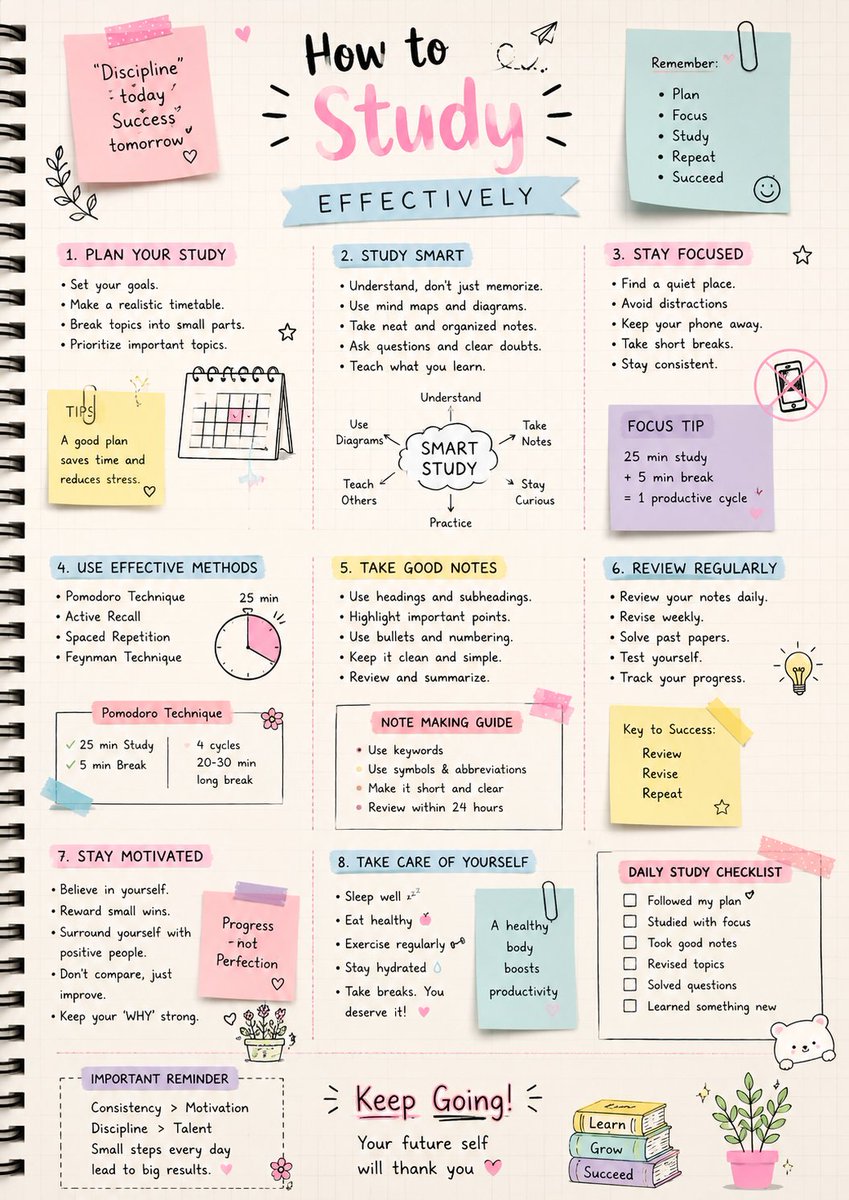 "Discipline"
today
Success
tomorrow
How to
Study
EFFECTIVELY
Remember:
• Plan
• Focus
• Study
• Repeat
• Succeed
1. PLAN YOUR STUDY
• Set your goals.
• Make a realistic timetable.
• Break topics into small parts.
• Prioritize important topics.
TIPS
A good plan
saves time and
reduces stress.
2. STUDY SMART
• Understand, don't just memorize.
• Use mind maps and diagrams.
• Take neat and organized notes.
• Ask questions and clear doubts.
• Teach what you learn.
Understand
Use
Diagrams
Take
Notes
SMART
STUDY
Teach
Others
Stay
Curious
Practice
3. STAY FOCUSED
• Find a quiet place.
• Avoid distractions
• Keep your phone away.
• Take short breaks.
• Stay consistent.
FOCUS TIP
25 min study
+ 5 min break
= 1 productive cycle
4. USE EFFECTIVE METHODS
• Pomodoro Technique
• Active Recall
• Spaced Repetition
• Feynman Technique
25 min
Pomodoro Technique
✓ 25 min Study
✓ 5 min Break
4 cycles
20-30 min
long break
5. TAKE GOOD NOTES
• Use headings and subheadings.
• Highlight important points.
• Use bullets and numbering.
• Keep it clean and simple.
• Review and summarize.
NOTE MAKING GUIDE
• Use keywords
• Use symbols & abbreviations
• Make it short and clear
• Review within 24 hours
6. REVIEW REGULARLY
• Review your notes daily.
• Revise weekly.
• Solve past papers.
• Test yourself.
• Track your progress.
Key to Success:
Review
Revise
Repeat
7. STAY MOTIVATED
• Believe in yourself.
• Reward small wins.
• Surround yourself with
positive people.
• Don't compare, just
improve.
• Keep your 'WHY' strong.
Progress
-not
Perfection
8. TAKE CARE OF YOURSELF
• Sleep well zzz
• Eat healthy
• Exercise regularly
• Stay hydrated
• Take breaks. You
deserve it!
A healthy
body
boosts
productivity
DAILY STUDY CHECKLIST
Followed my plan
Studied with focus
Took good notes
Revised topics
Solved questions
Learned something new
IMPORTANT REMINDER
Consistency > Motivation
Discipline > Talent
Small steps every day
lead to big results.
Keep Going!
Your future self
will thank you
Learn
Grow
Succeed